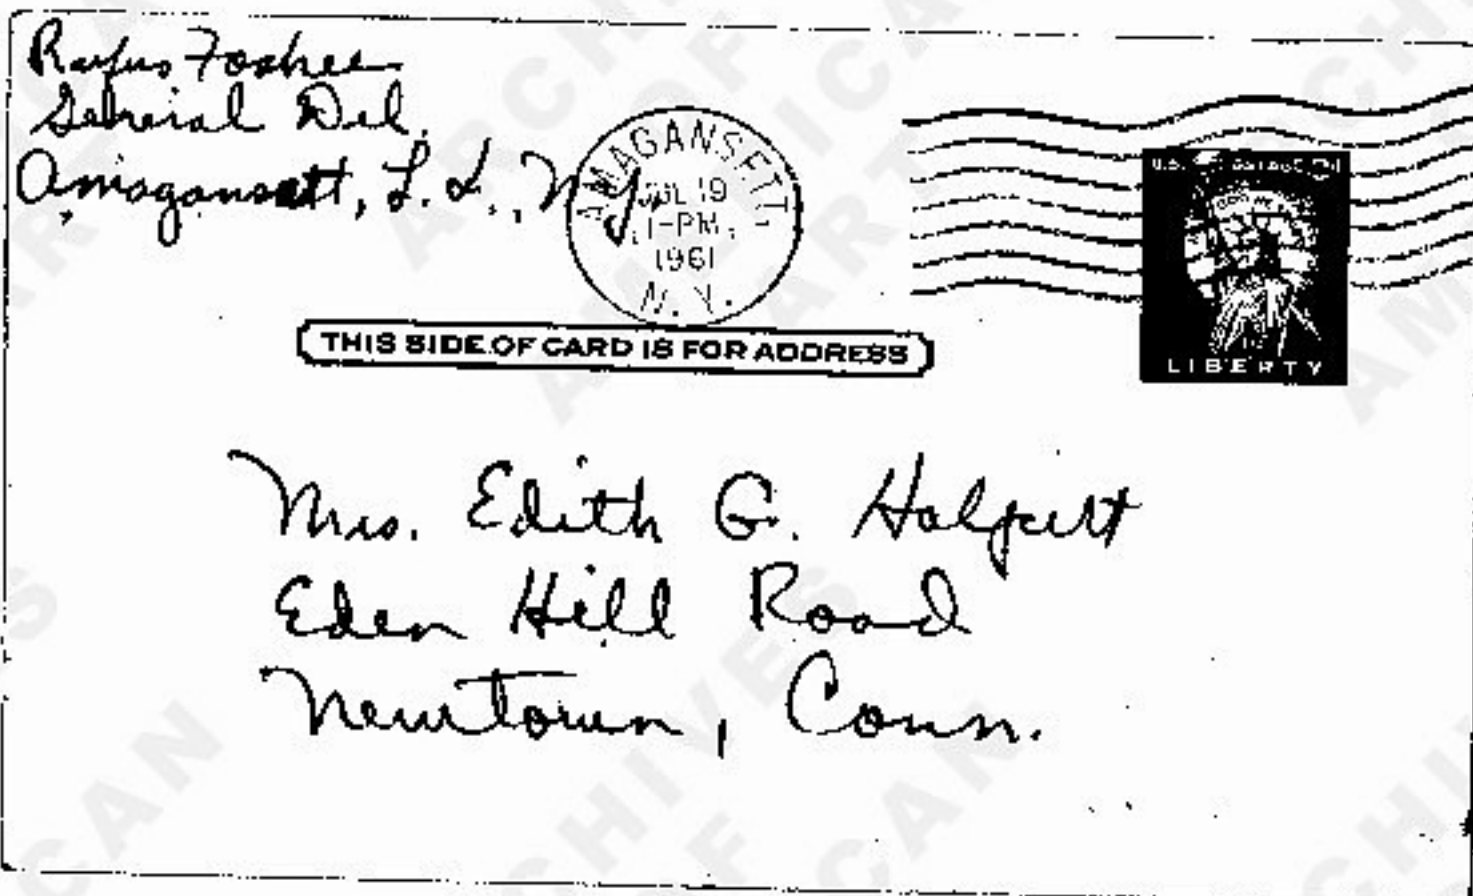 Rufus Foshee
General Del.
Amagansett, L.I., N.Y.
AMAGANSETT,
JUL 19
1-PM
1961
N.Y.
U.S. POSTAGE
LIBERTY
THIS SIDE OF CARD IS FOR ADDRESS
Mrs. Edith G. Halpert
Eden Hill Road
Newtown, Conn.
ARCHIVES
OF
AMERICAN
ART